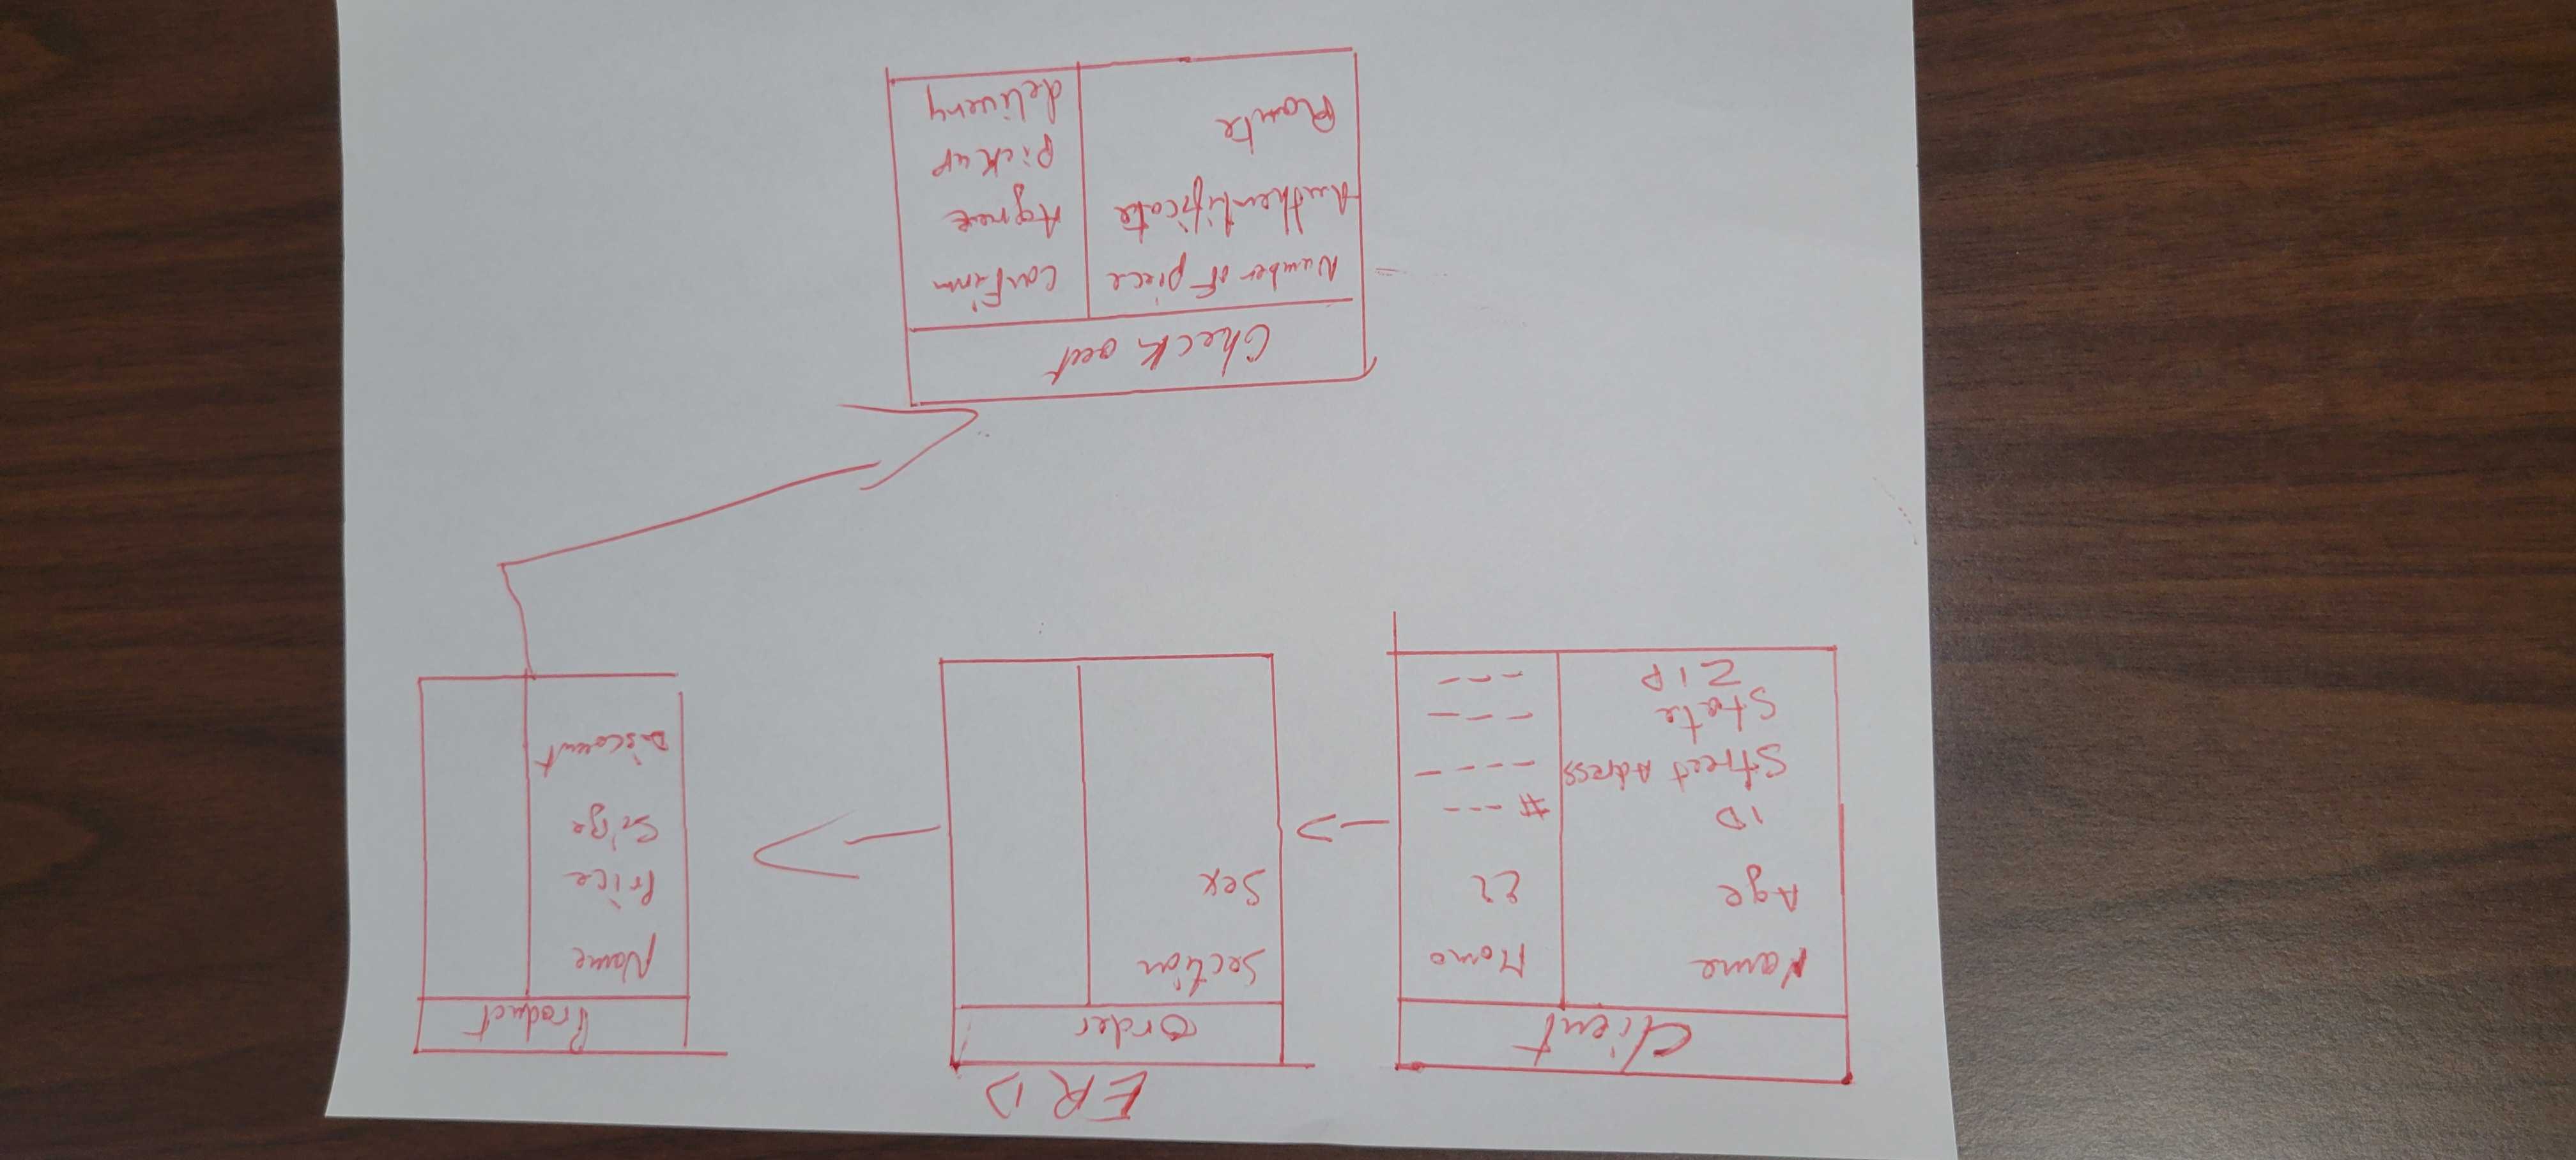 ERD
Client
Name Momo
Age 22
ID # ---
Street Adress ----
State ---
ZIP ---
Order
Section
Sex
Product
Name
Price
Size
Discount
Check out
Number of piece Confirm
Authentificate Agree
Route Pick up
delivery